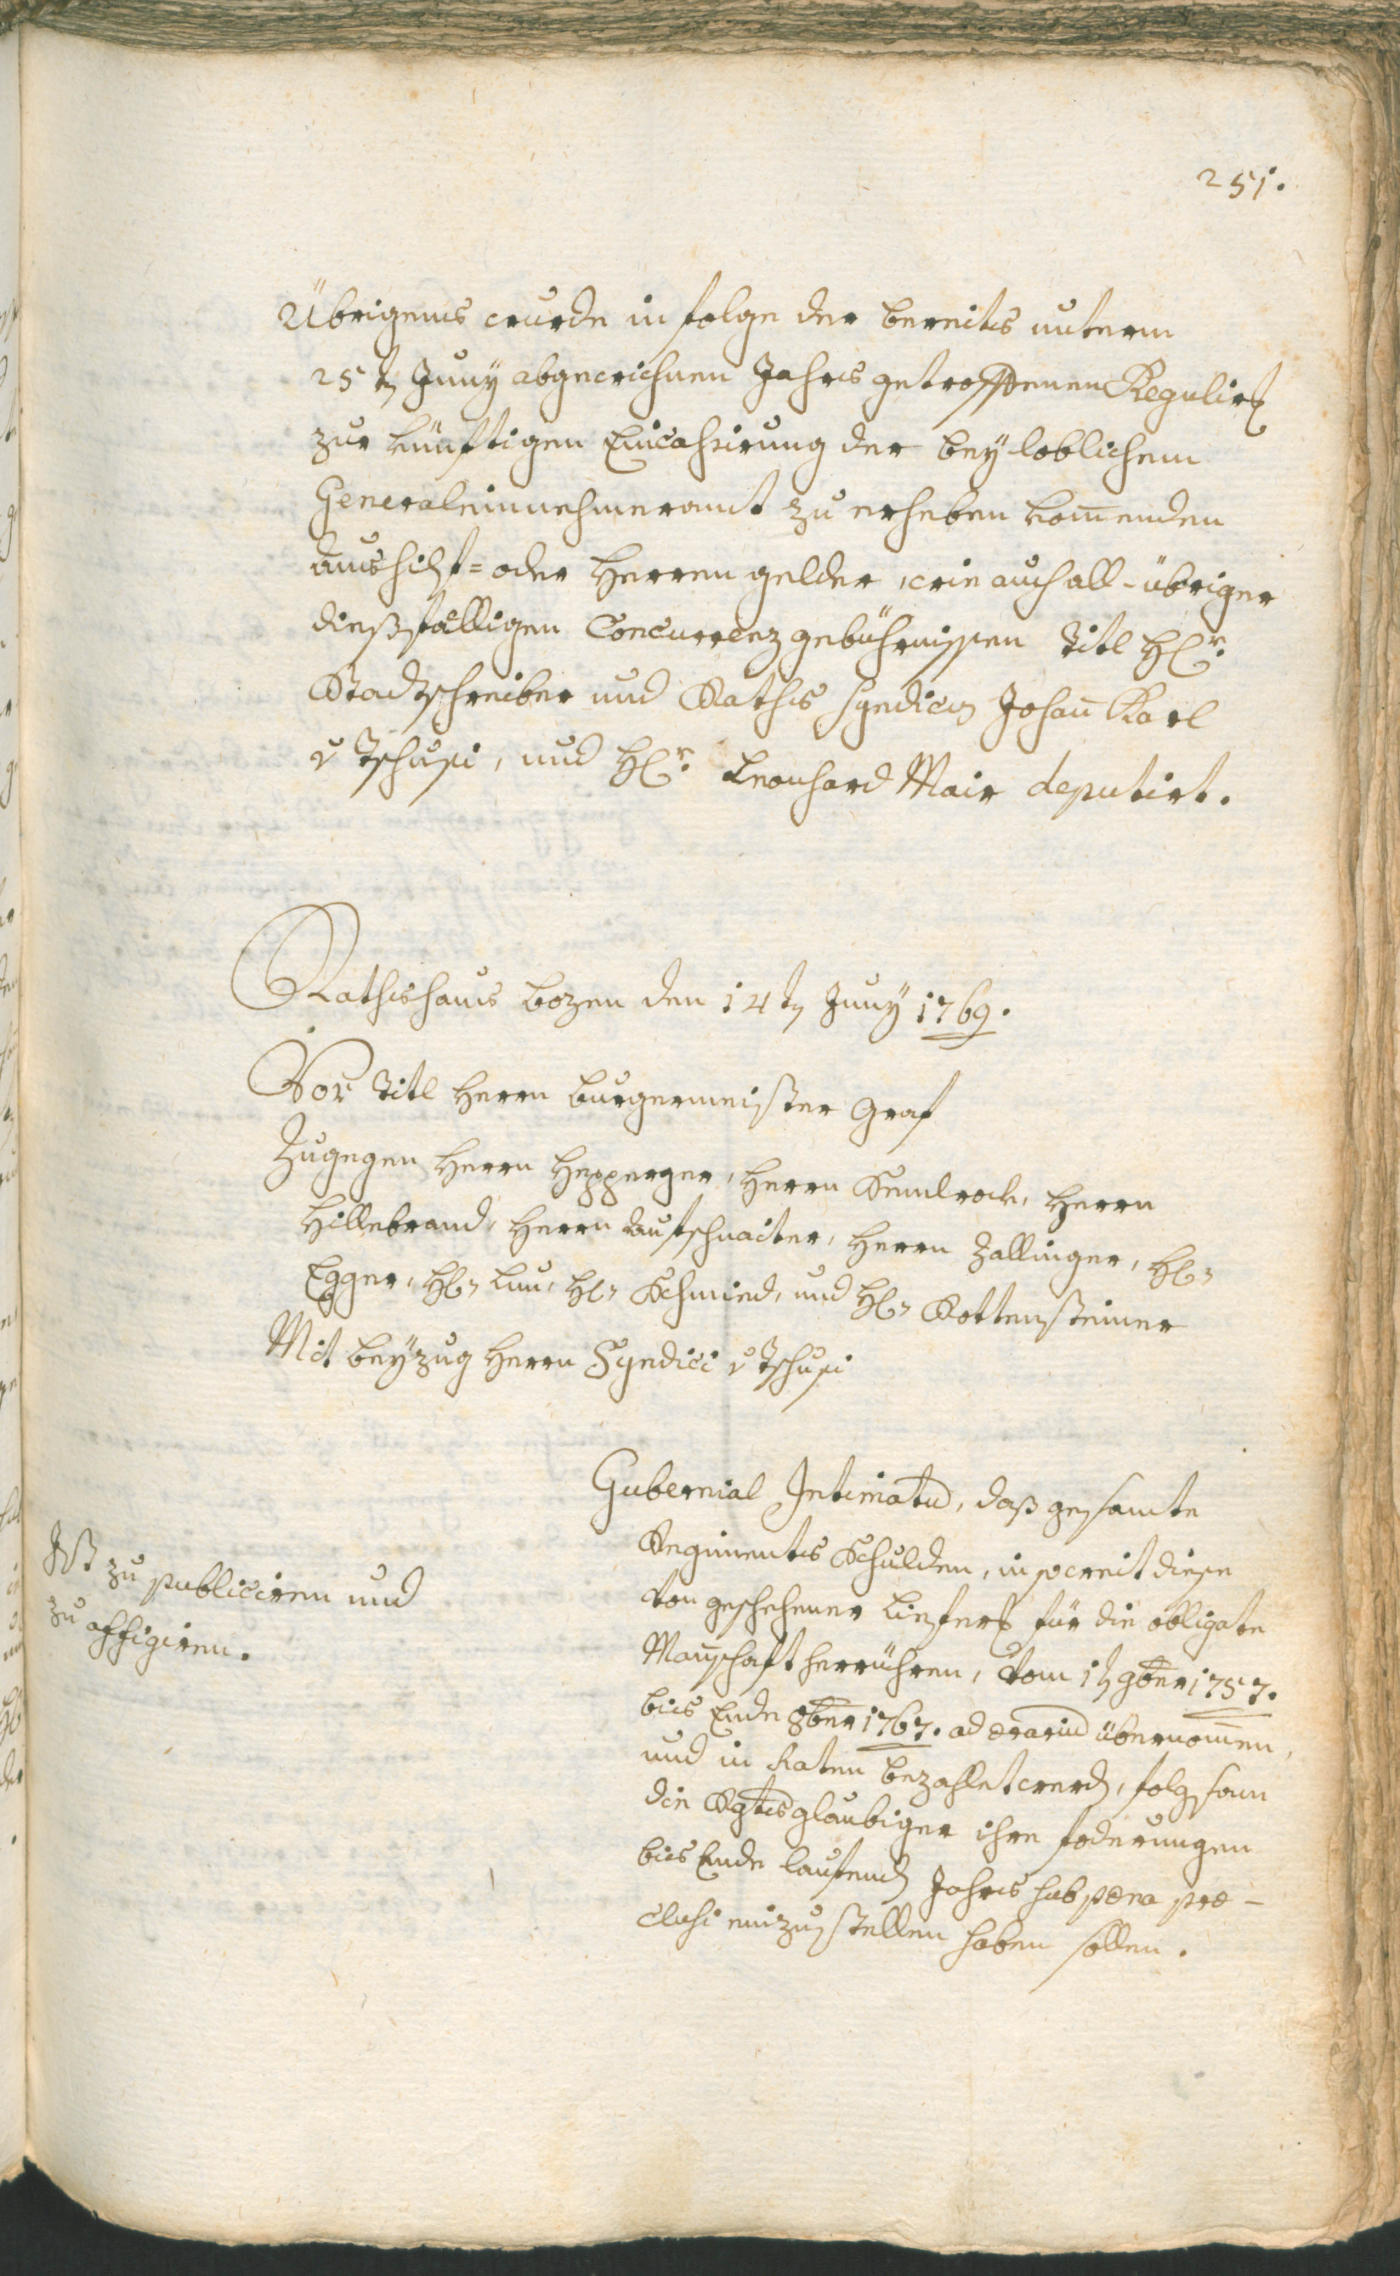 251.
Übrigens wurde in folge der bereits unterm
25t Juny abgewichnen Jahrs getroffenen Regulirg
zur künftigen Eincahsirung der bey loblichem
Generaleinnehmeramt zu erheben kom̄enden
aushilf= oder Herren gelder, wie auch all-übriger
dießfälligen Concurrenzgebührnissen Titl H͡r.
Stadtschreiber und Raths Syndicus Johan̄ Karl
v Tschusi, und H͡r. Leonhard Mair deputirt.
Rathshaus Bozen den 14t Juny 1769.
Vor Titl Herrn Burgermeister Graf
Zugegen Herrn Hepperger, Herrn Kemlrock, Herrn
Hillebrand, Herrn Aufschnaiter, Herrn Zallinger, H.
Egger, H. Lun, H. Schmied, und H. Rottensteiner
Mit beyzug Herrn Syndici v Tschusi
Gubernial Intimatū, daß gesamte
Regiments Schulden, in soweit diese
Ist zu publiciren und
von geschehener Lieferg für die obligate
zu affigiren.
Man̄schaft herrühren, vom 1t 9ber 1757.
bis Ende 8ber 1767. ad ærariū übernom̄en,
und in Raten bezahlet werd, folgsam
die Rgtsglaubiger ihre foderungen
bis Ende laufend Jahrs sub pœna præ-
clusi einzustellen haben sollen.